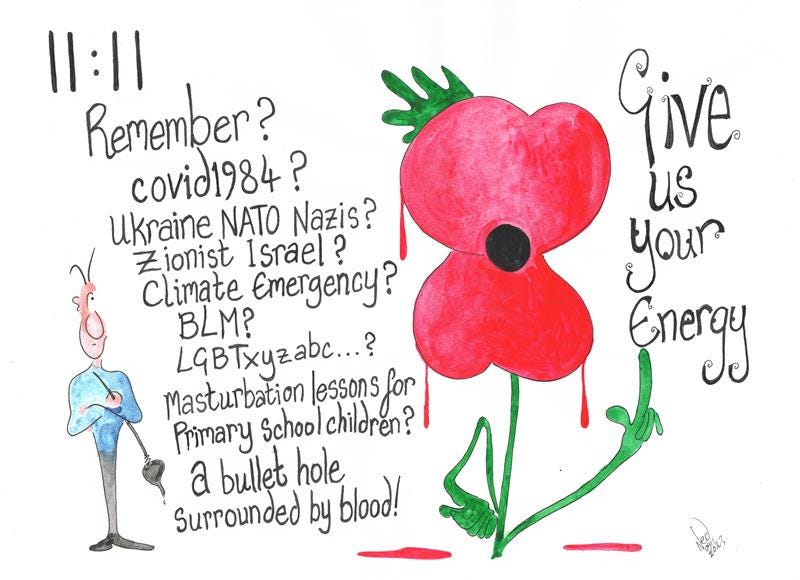 11:11
Remember?
covid1984?
Ukraine NATO Nazis?
Zionist Israel?
Climate Emergency?
BLM?
LGBTxyzabc...?
Masturbation lessons for
Primary school children?
a bullet hole
surrounded by blood!
Give
us
your
Energy
2023